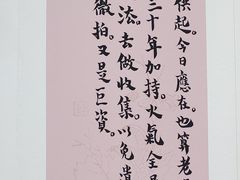 供起。今日應在。也算老
三十年加持。火氣全
法。去做收集。以免遺
微拍。又是巨資。